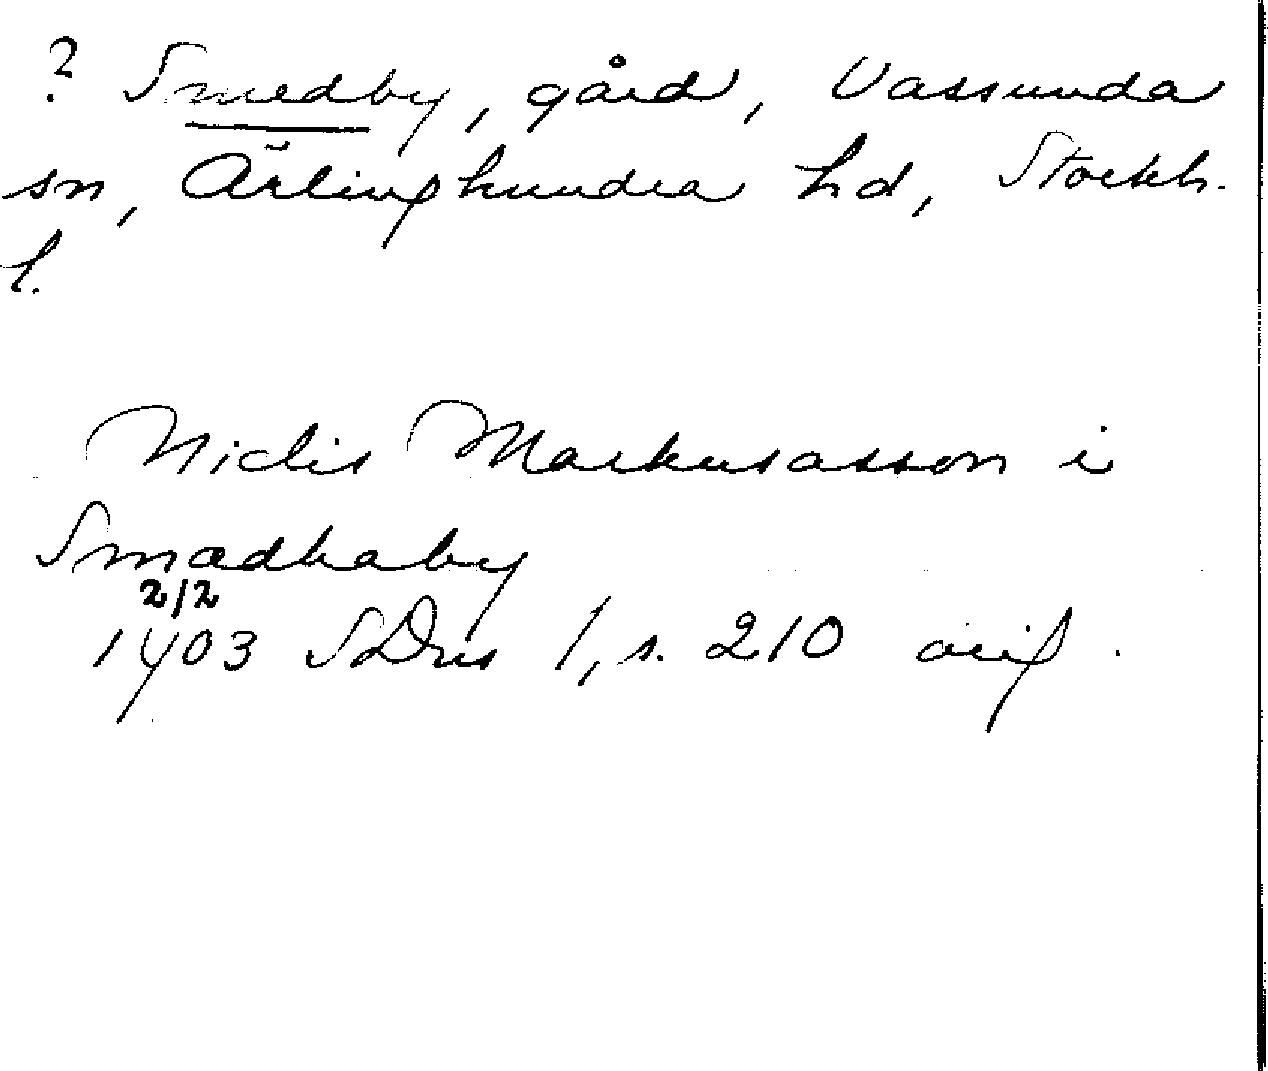 ? Smedby, gård, Vassunda
sn, Ärlinghundra hd, Stockh.
l.
Niclis Markusasson i
Smædhaby
2/2
1403 SDns 1, s. 210 orig.